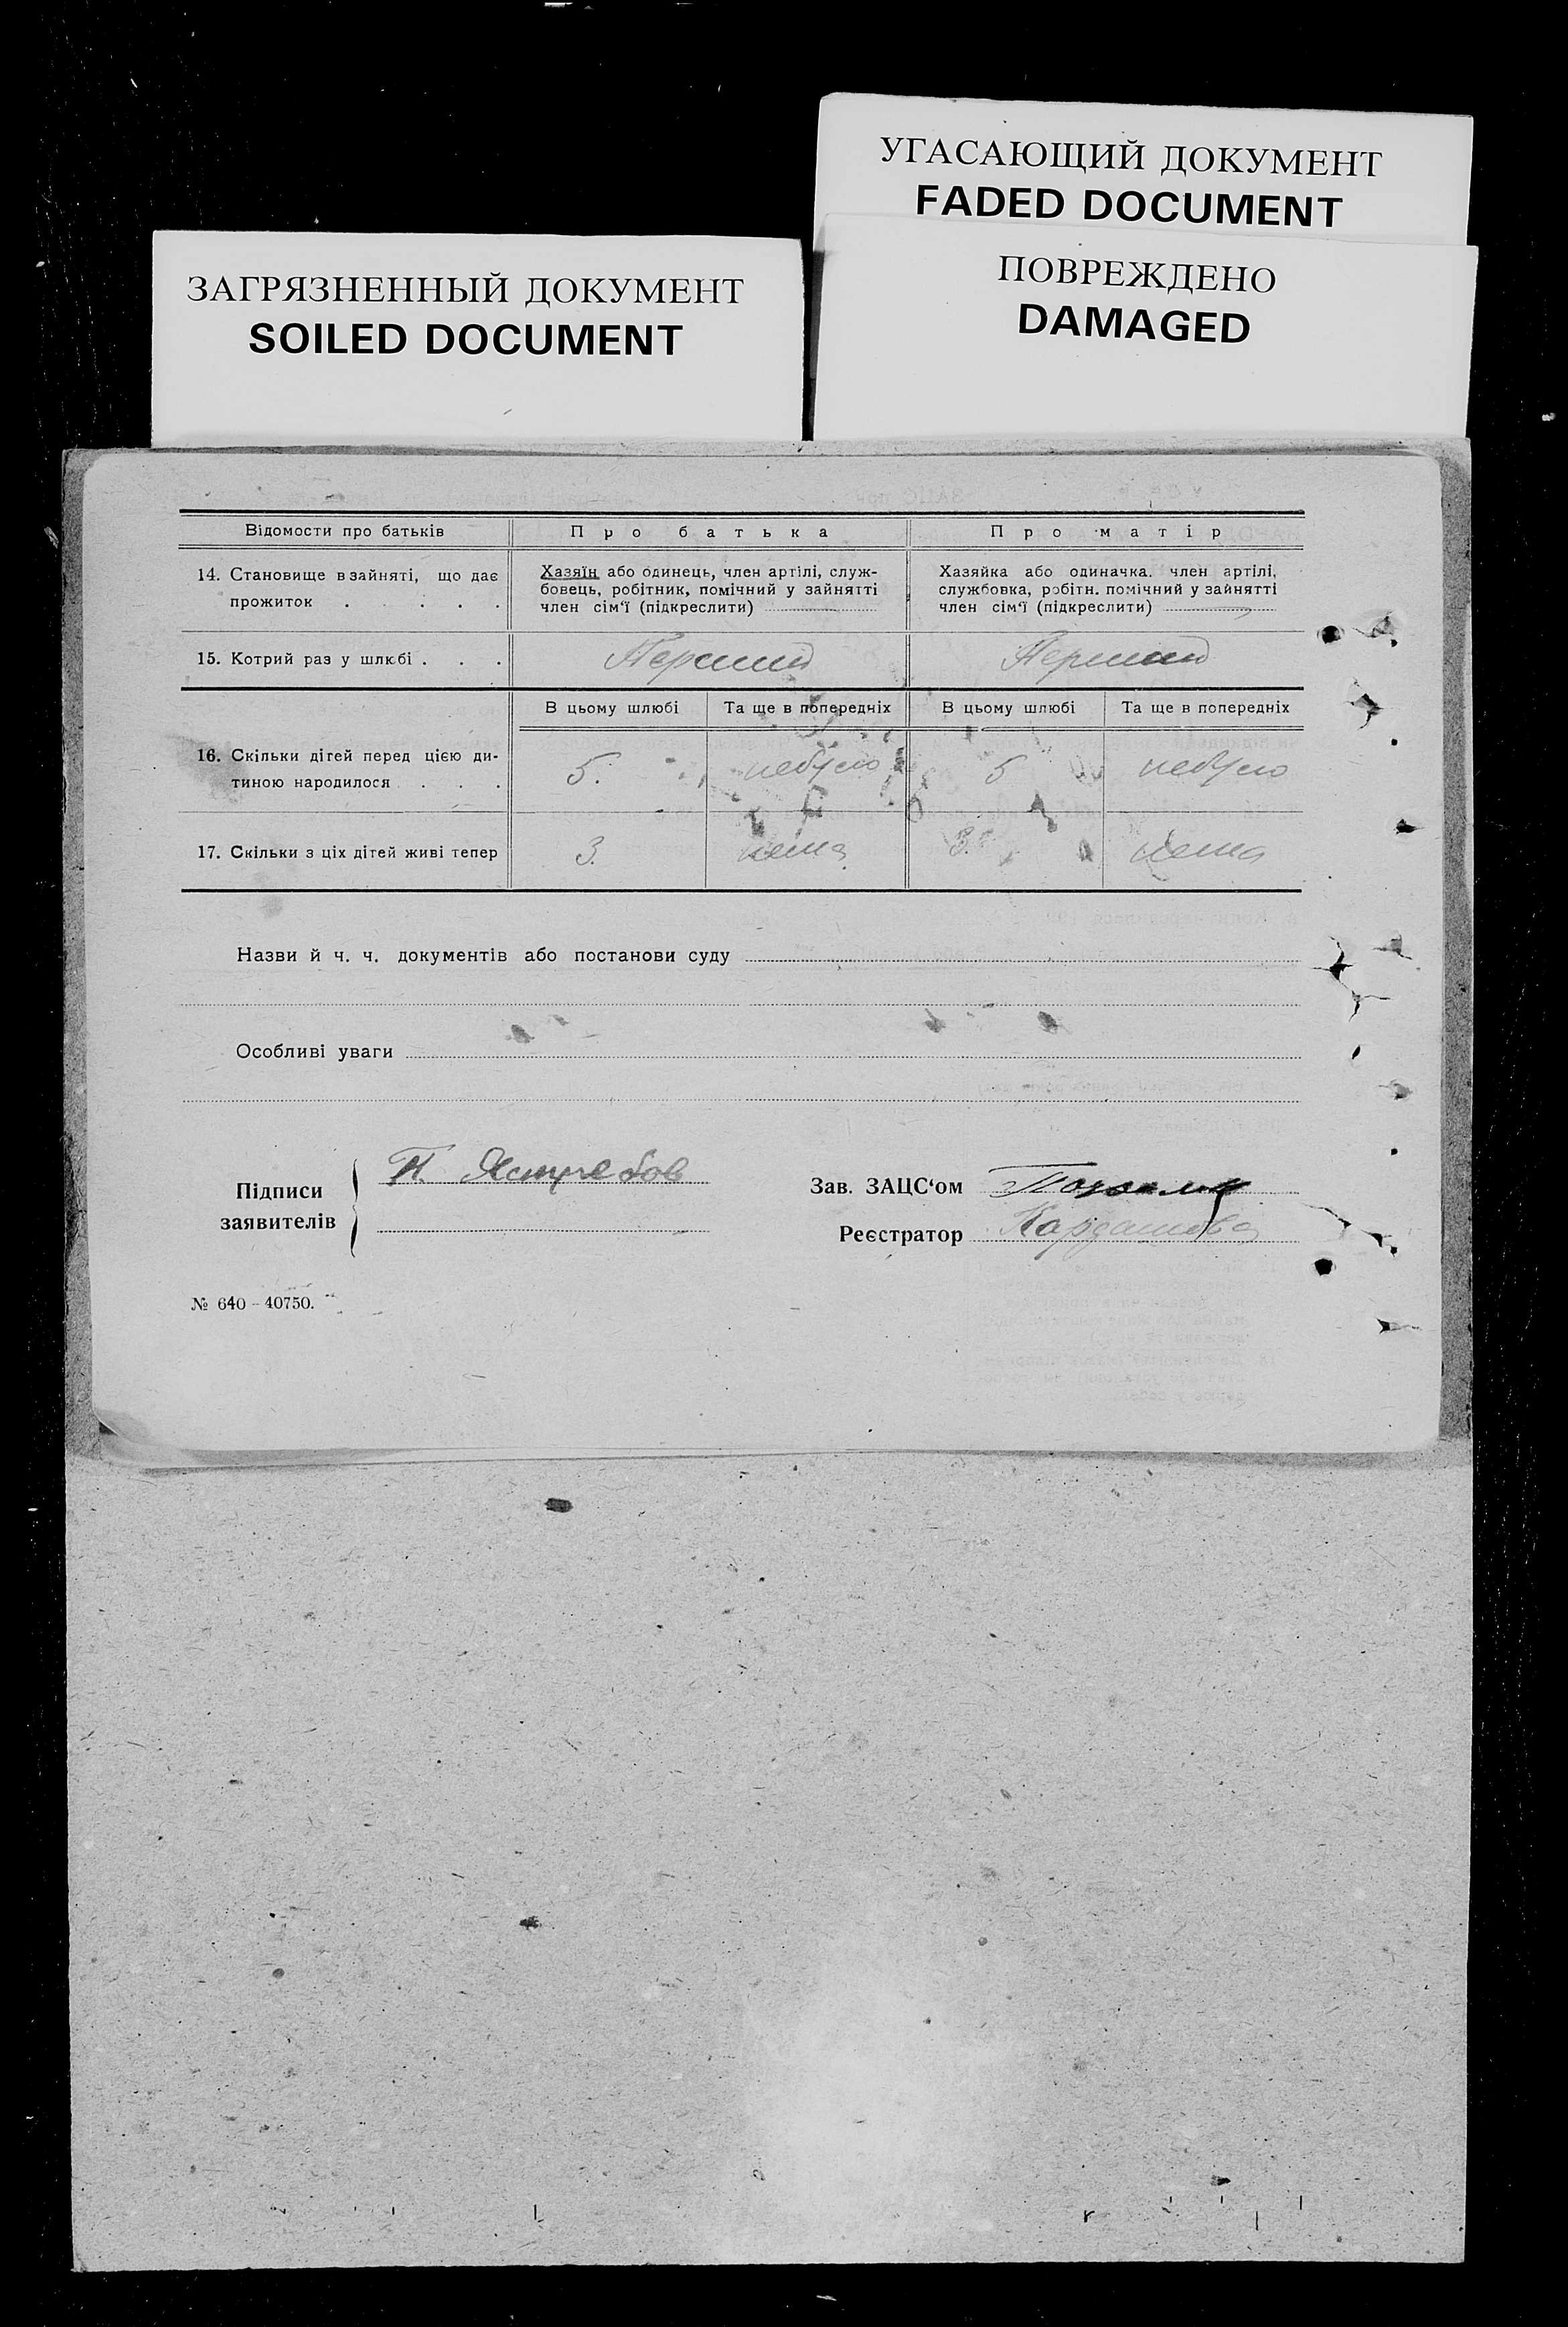 УГАСАЮЩИЙ ДОКУМЕНТ
FADED DOCUMENT
ПОВРЕЖДЕНО
DAMAGED
ЗАГРЯЗНЕННЫЙ ДОКУМЕНТ
SOILED DOCUMENT
Відомости про батьків
Про батька
Про матір
14. Становище в зайняті, що дає
прожиток . . . . .
Хазяїн або одинець, член артілі, служ-
бовець, робітник, помічний у зайнятті
член сім‘ї (підкреслити)
Хазяйка або одиначка, член артілі,
службовка, робітн. помічний у зайнятті
член сім‘ї (підкреслити)
15. Котрий раз у шлюбі . . .
Перший
Перший
В цьому шлюбі
Та ще в попередніх
В цьому шлюбі
Та ще в попередніх
16. Скільки дітей перед цією ди-
тиною народилося . . .
5.
небуло
5
небуло
17. Скільки з ціх дітей живі тепер
3.
нема
3.
нема
Назви й ч. ч. документів або постанови суду
Особливі уваги
Підписи
заявителів
П. Ястребов
Зав. ЗАЦС‘ом
Реєстратор
Кардашова
№ 640 - 40750.